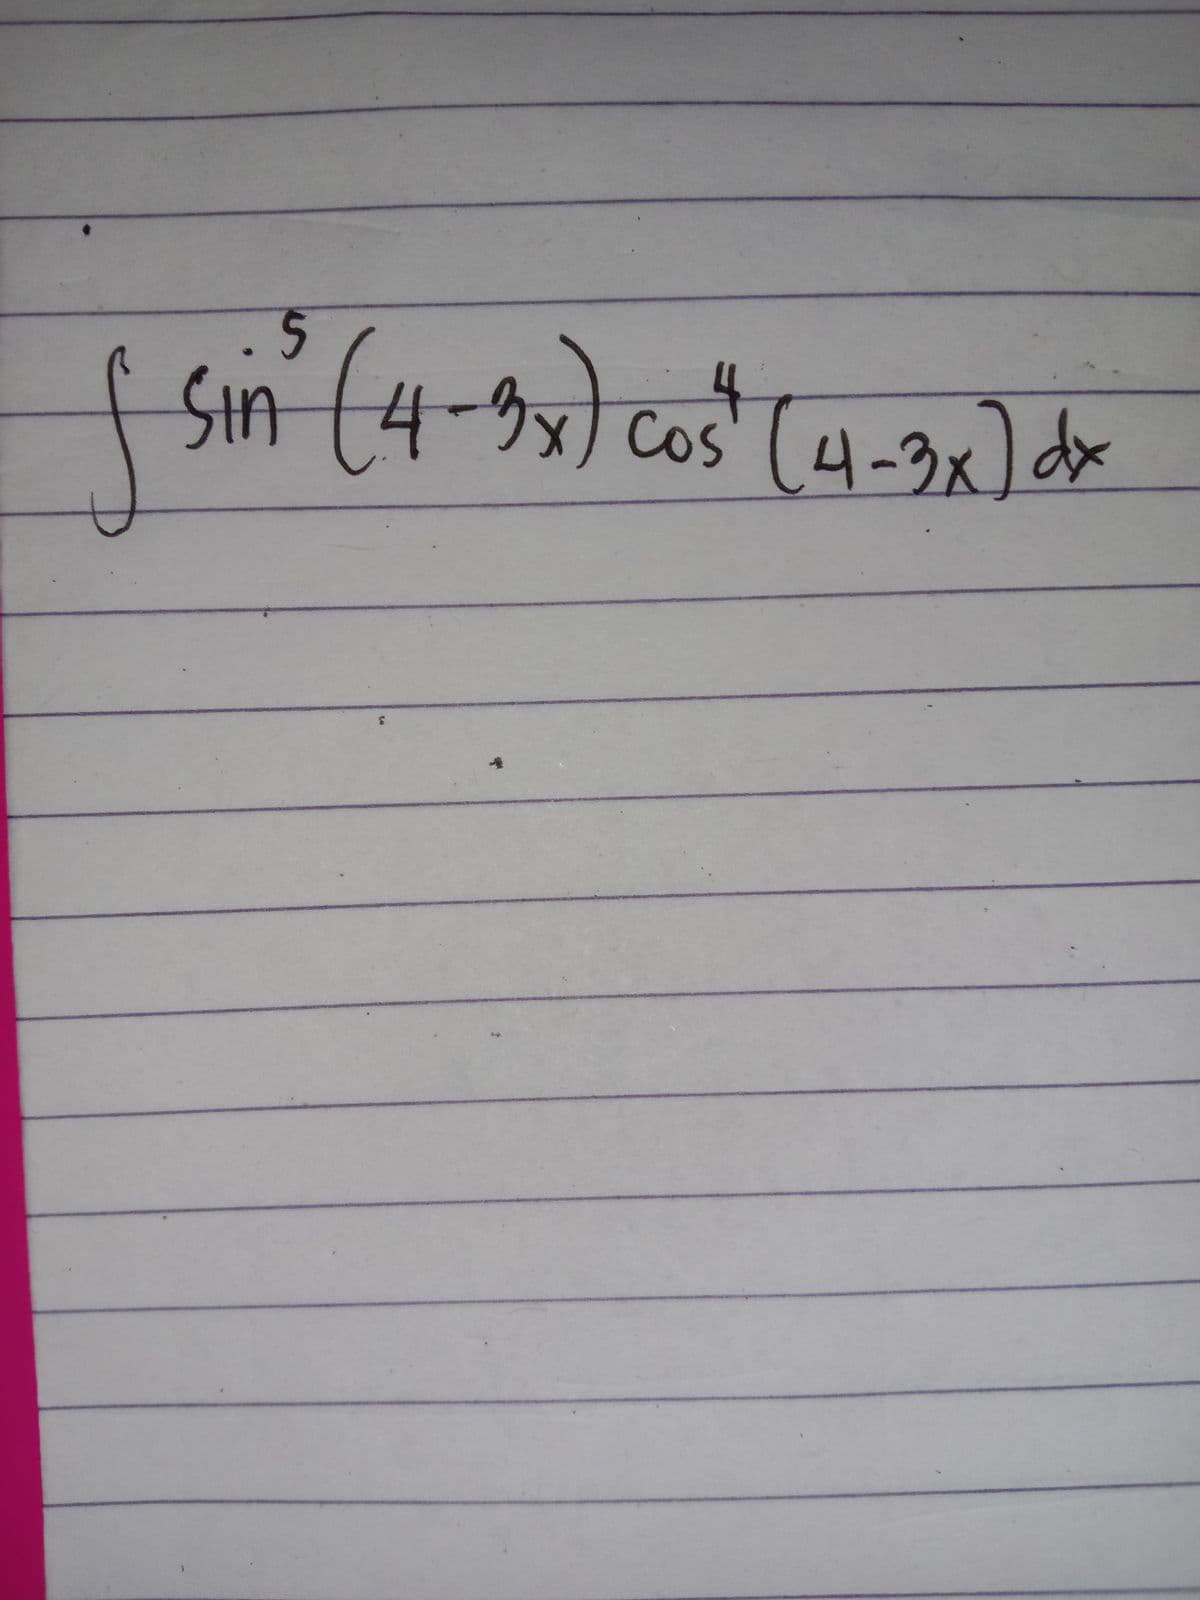 ∫ sin⁵ (4-3x) cos⁴ (4-3x) dx